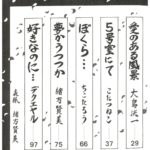 愛のある風景
大島浜一
29
5号室にて
こたつねこ
37
ぼくら…
ちこたろう
66
夢かうつつか
緒方賢美
75
好きなのに…
デラエヤル
97
表紙 緒方賢美